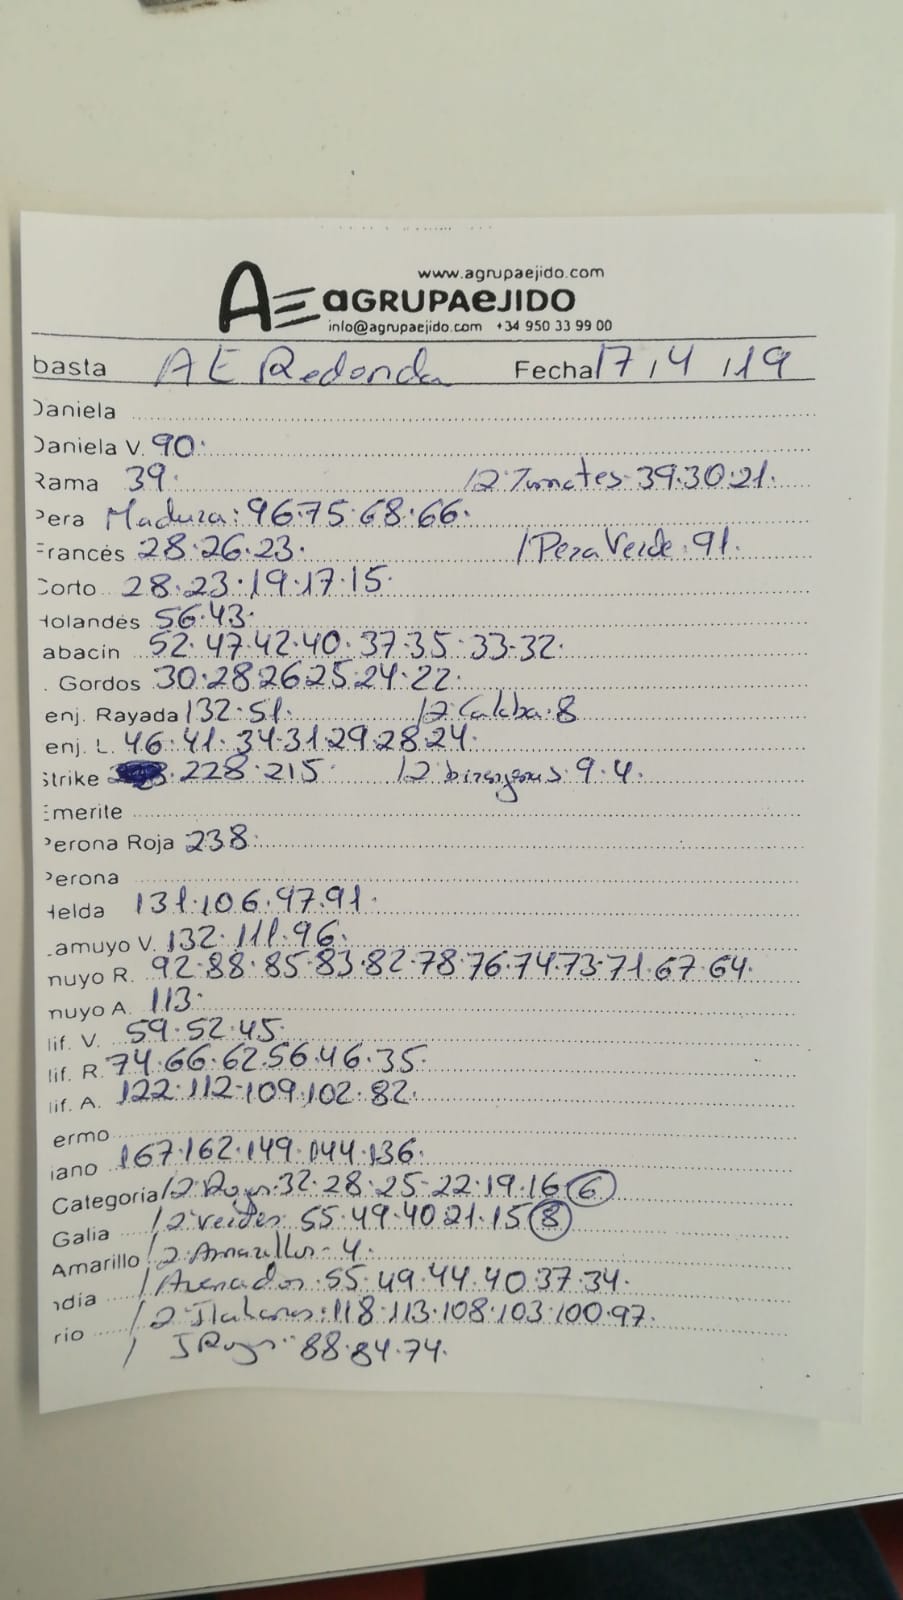 www.agrupaejido.com
AE aGRUPAeJIDO
info@agrupaejido.com +34 950 33 99 00
basta AE Redonda Fecha 17,4,19
Daniela
Daniela V. 90.
Rama 39. 12ª Tomates. 39.30.21.
Pera Madura: 96.75.68.66.
Francés 28.26.23. / Pera Verde. 91.
Corto 28.23.19.17.15.
Holandés 56.43.
abacín 52.47.42.40.37.35.33.32.
. Gordos 30.28.26.25.24.22.
enj. Rayada 132.51. /2ª Calaba. 8
enj. L. 46.41.34.31.29.28.24.
Strike .228.215 /2 9.4.
Emerite
Perona Roja 238.
Perona
Helda 131.106.97.91.
Lamuyo V. 132.111.96.
nuyo R. 92.88.85.83.82.78.76.74.73.71.67.64.
nuyo A. 113.
lif. V. 59.52.45.
lif. R. 74.66.62.56.46.35.
lif. A. 122.112.109.102.82.
ermo
iano 167.162.149.144.136.
Categoría /2ª Rojos. 32.28.25.22.19.16 6
Galia /2ª verdes. 55.49.40.21.15 8
Amarillo /2ª Amarillos - 4.
ndía / Asenados. 55.49.44.40.37.34.
rio /2ª Italianos: 118.113.108.103.100.97.
/ I Rojos: 88.84.74.